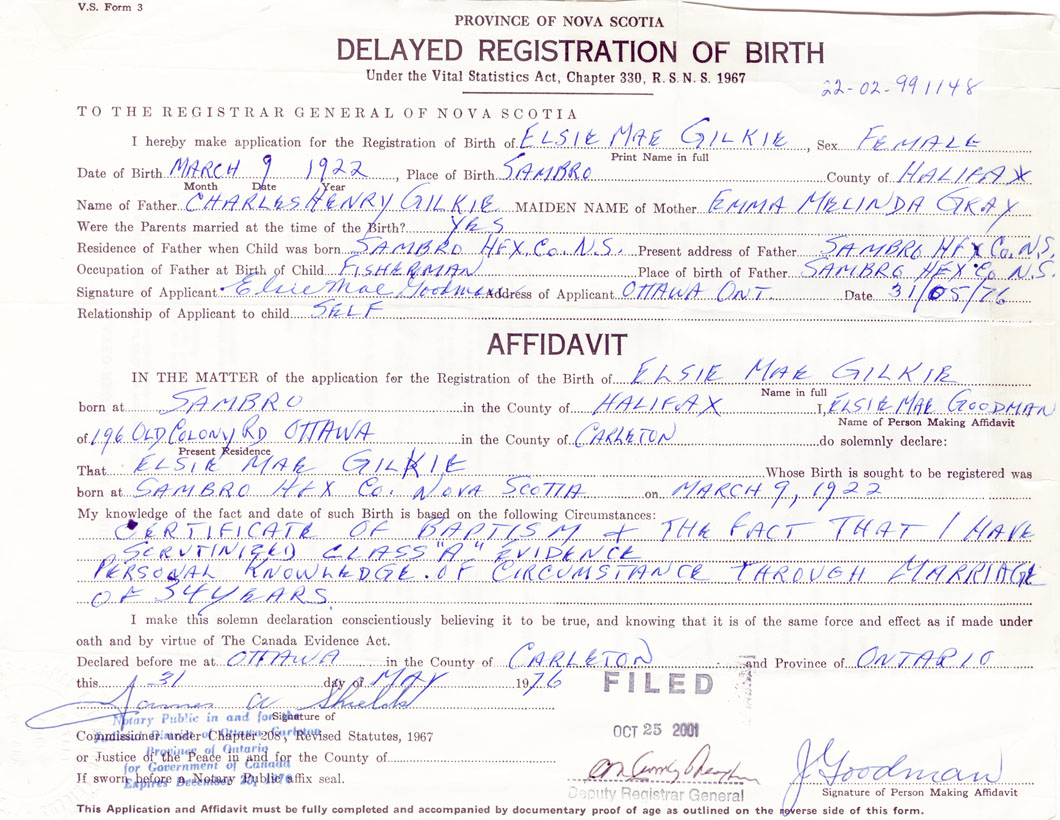 V.S. Form 3
PROVINCE OF NOVA SCOTIA
DELAYED REGISTRATION OF BIRTH
Under the Vital Statistics Act, Chapter 330, R.S.N.S. 1967
22-02-991148
TO THE REGISTRAR GENERAL OF NOVA SCOTIA
I hereby make application for the Registration of Birth of ELSIE MAE GILKIE, Sex FEMALE
Print Name in full
Date of Birth MARCH 9 1922, Place of Birth SAMBRO County of HALIFAX
Month Date Year
Name of Father CHARLES HENRY GILKIE MAIDEN NAME of Mother EMMA MELINDA GRAY
Were the Parents married at the time of the Birth? YES
Residence of Father when Child was born SAMBRO HFX. Co. N.S. Present address of Father SAMBRO HFX Co. N.S.
Occupation of Father at Birth of Child FISHERMAN Place of birth of Father SAMBRO HFX Co N.S.
Signature of Applicant Elsie Mae Goodman Address of Applicant OTTAWA ONT. Date 31/05/76
Relationship of Applicant to child SELF
AFFIDAVIT
IN THE MATTER of the application for the Registration of the Birth of ELSIE MAE GILKIE
Name in full
born at SAMBRO in the County of HALIFAX I, ELSIE MAE GOODMAN
Name of Person Making Affidavit
of 196 OLD COLONY RD OTTAWA in the County of CARLETON do solemnly declare:
Present Residence
That ELSIE MAE GILKIE Whose Birth is sought to be registered was
born at SAMBRO HFX Co. NOVA SCOTIA on MARCH 9, 1922
My knowledge of the fact and date of such Birth is based on the following Circumstances:
CERTIFICATE OF BAPTISM + THE FACT THAT I HAVE
SCRUTINISED CLASS "A" EVIDENCE
PERSONAL KNOWLEDGE OF CIRCUMSTANCE THROUGH MARRIAGE
OF 34 YEARS.
I make this solemn declaration conscientiously believing it to be true, and knowing that it is of the same force and effect as if made under
oath and by virtue of The Canada Evidence Act.
Declared before me at OTTAWA in the County of CARLETON and Province of ONTARIO
this 31 day of MAY 1976
FILED
James W Shields
Signature of
Notary Public in and for the
OCT 25 2001
Commissioner under Chapter 208, Revised Statutes, 1967
District of Ottawa-Carleton
Province of Ontario
or Justice of the Peace in and for the County of
for Government of Canada
If sworn before a Notary Public affix seal.
Expires December 1976
J Goodman
Deputy Registrar General
Signature of Person Making Affidavit
This Application and Affidavit must be fully completed and accompanied by documentary proof of age as outlined on the reverse side of this form.